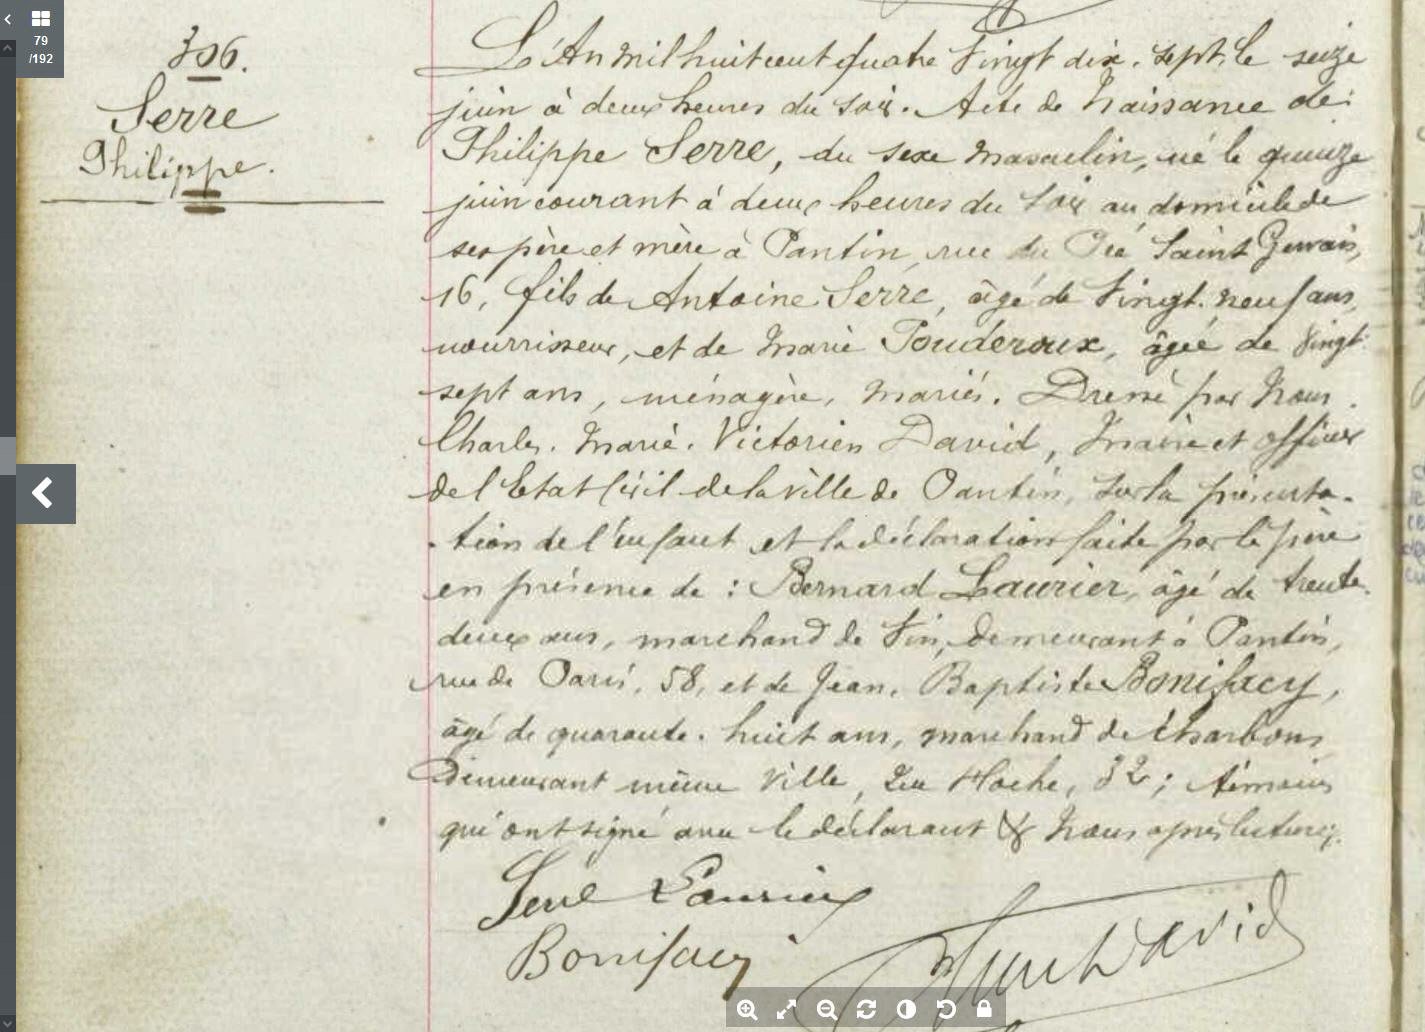 79
/192
306.
Serre
Philippe.
L'An mil huit cent quatre Vingt dix. sept, le seize
juin à deux heures du soir. Acte de Naissance de:
Philippe Serre, du sexe masculin, né le quinze
juin courant à deux heures du soir au domicile de
ses père et mère à Pantin, rue du Pré Saint Gervais,
16, fils de Antoine Serre, âgé de Vingt. neuf ans,
nourrisseur, et de Marie Pouderoux, âgée de Vingt
sept ans, ménagère, mariés. Dressé par Nous
Charles. Marie. Victorien David, Maire et officier
de l'Etat Civil de la ville de Pantin, sur la présenta-
-tion de l'enfant et la déclaration faite par le père
en présence de : Bernard Laurier, âgé de trente.
deux ans, marchand de Vin, demeurant à Pantin,
rue de Paris, 58, et de Jean. Baptiste Bonifacy,
âgé de quarante. huit ans, marchand de Charbons
Demeurant même Ville, rue Hoche, 32; témoins
qui ont signé avec le déclarant & Nous après lecture.
Serre Laurier
Bonifacy
David